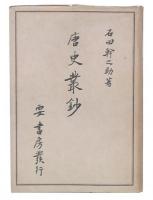 石田幹之助著
唐史叢鈔
要書房發行